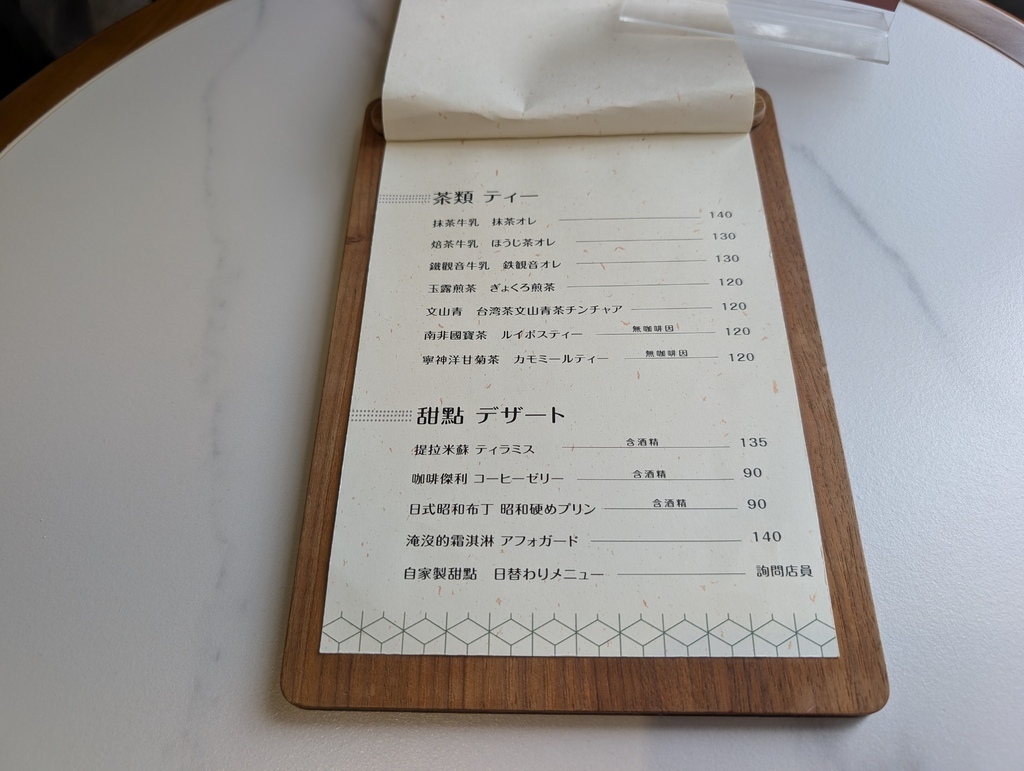 茶類 ティー
抹茶牛乳 抹茶オレ 140
焙茶牛乳 ほうじ茶オレ 130
鐵觀音牛乳 鉄観音オレ 130
玉露煎茶 ぎょくろ煎茶 120
文山青 台湾茶文山青茶チンチャア 120
南非國寶茶 ルイボスティー 無咖啡因 120
寧神洋甘菊茶 カモミールティー 無咖啡因 120
甜點 デザート
提拉米蘇 ティラミス 含酒精 135
咖啡傑利 コーヒーゼリー 含酒精 90
日式昭和布丁 昭和硬めプリン 含酒精 90
淹沒的霜淇淋 アフォガード 140
自家製甜點 日替わりメニュー 詢問店員